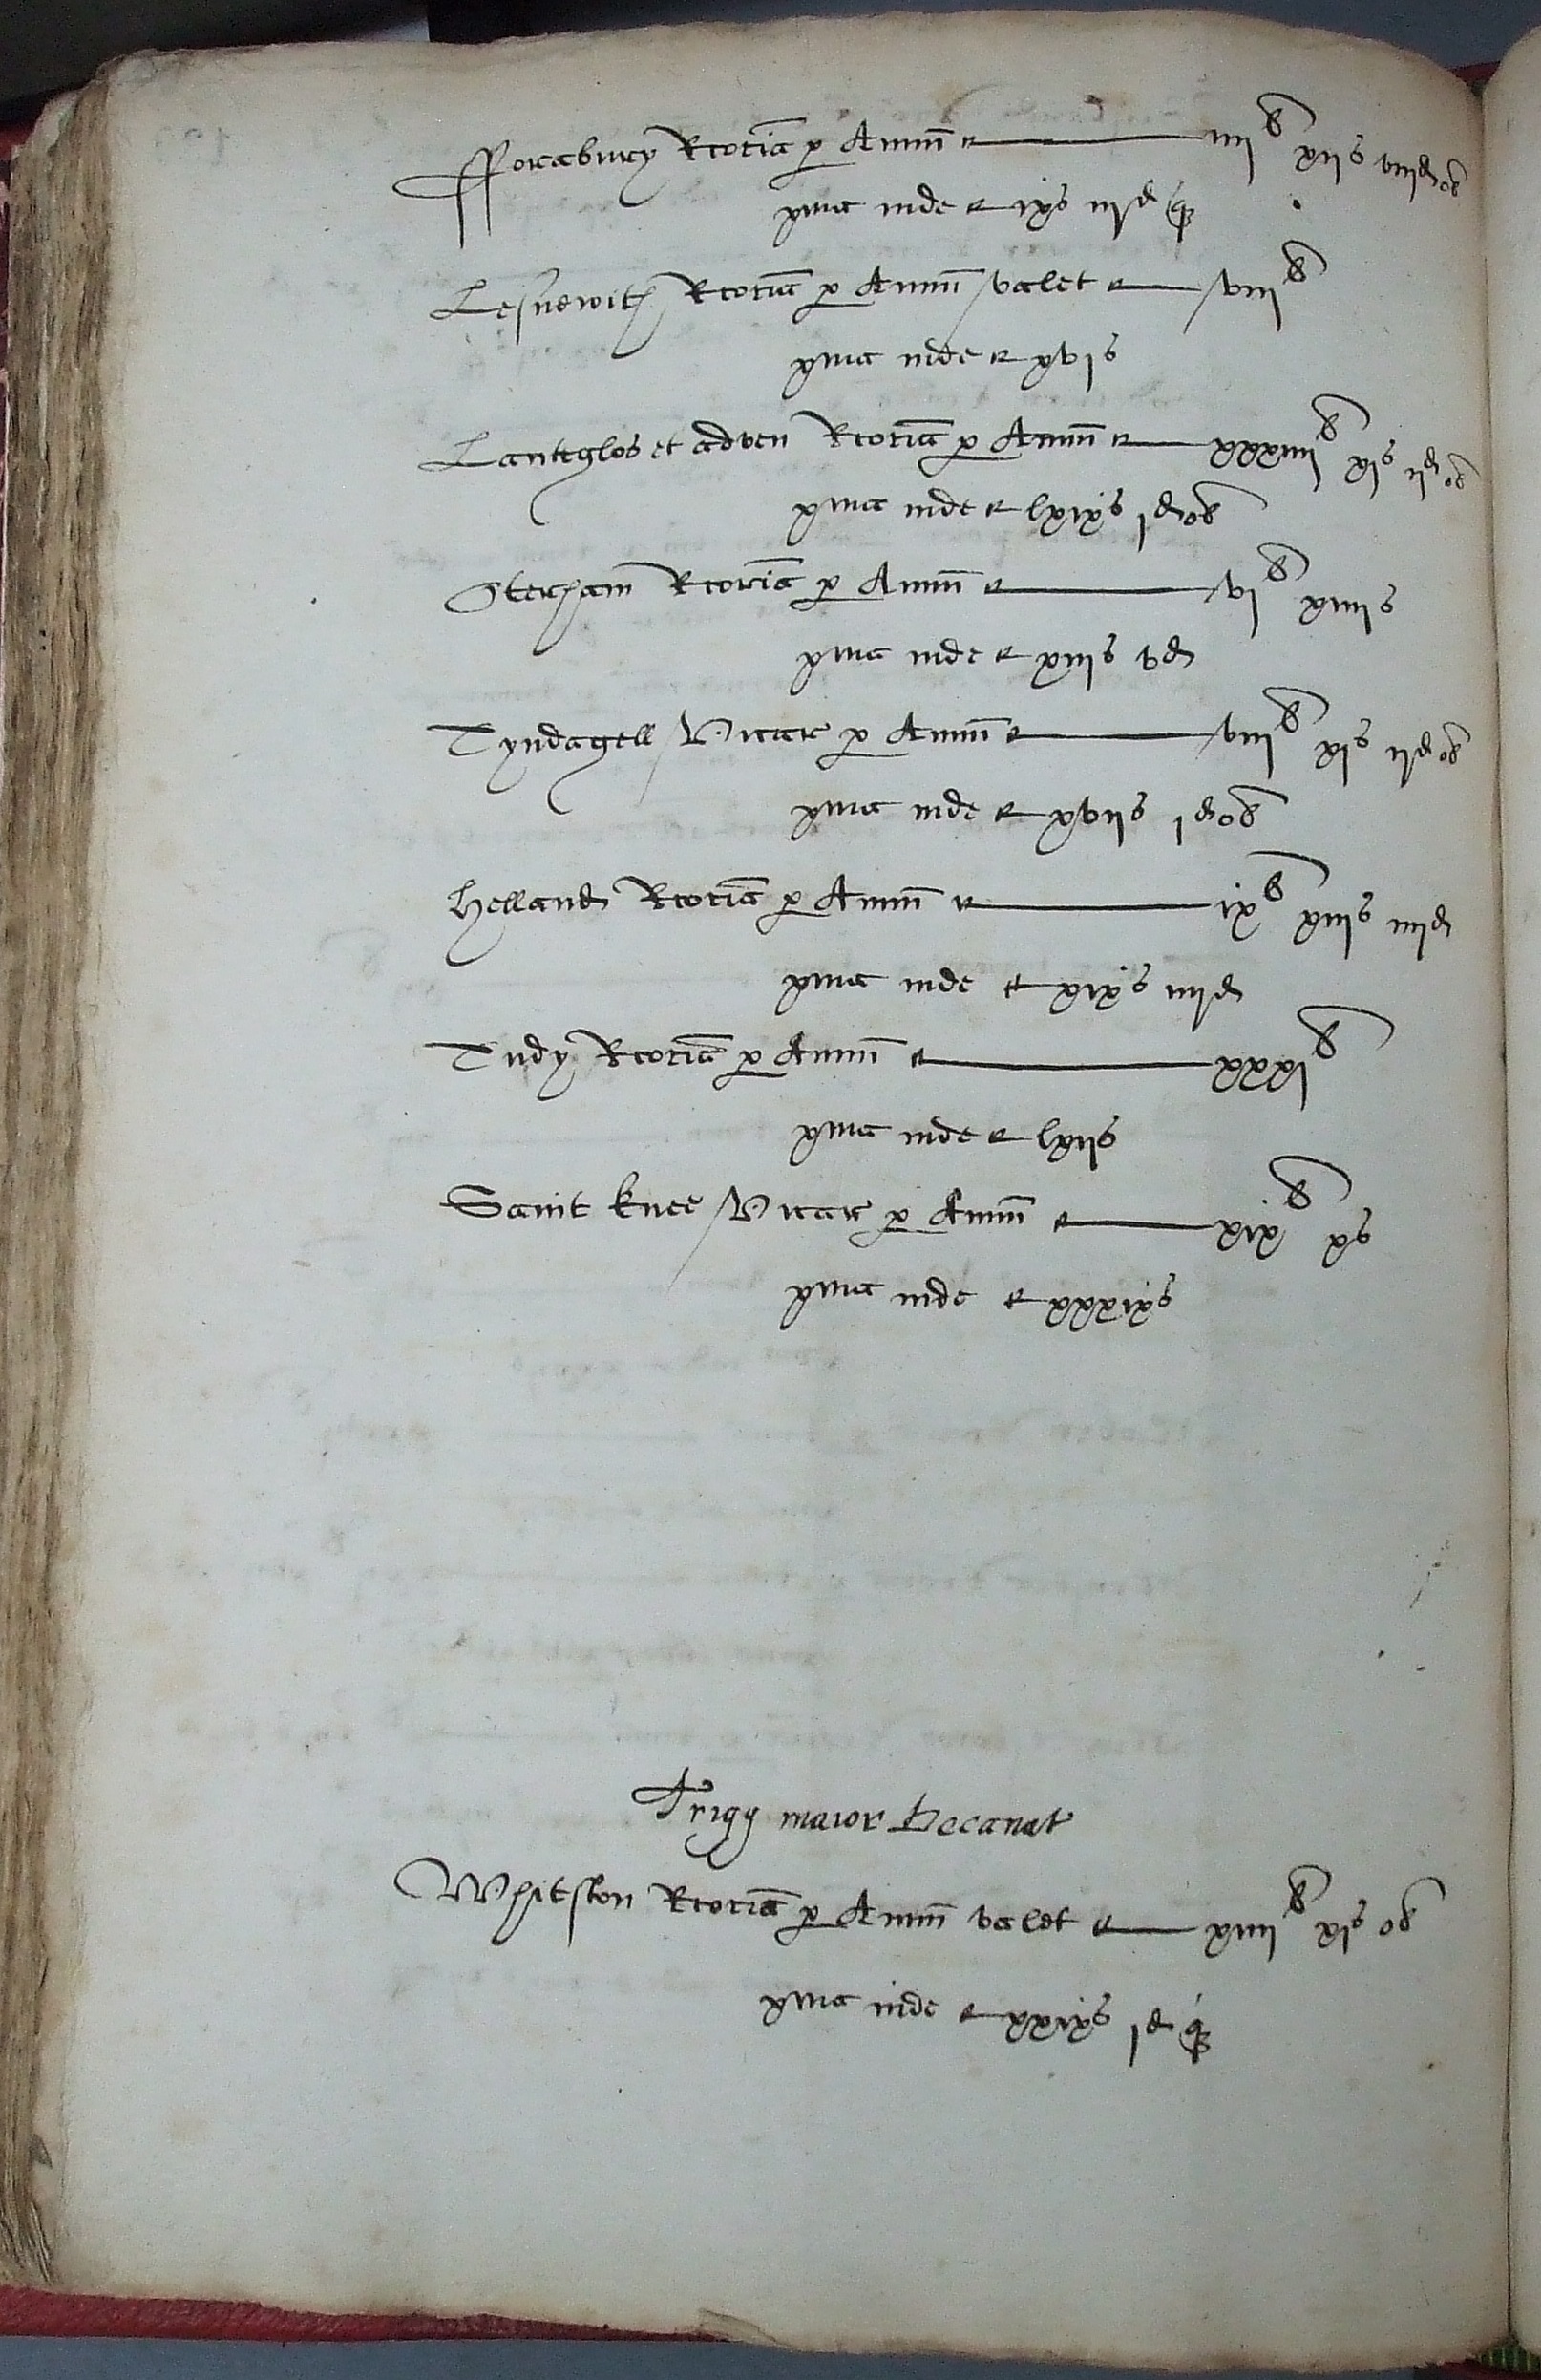 fforabury Rcoria p Annu iiij li xijs viijd ob
xma inde ixs iijd q
Lesnewith Rcoria p Annu valet viij li
xma inde xvjs
Lanteglos et adven Rcoria p Annu xxxiiij li xjs ijd ob
xma inde lxixs jd ob
Otterham Rcoria p Annu vj li xiiijs
xma inde xiijs vd
Tyndagell Vicar p Annu viij li xjs ijd ob
xma inde xvijs jd ob
Helland Rcoria p Annu ix li xiijs iiijd
xma inde xixs iiijd
Tudy Rcoria p Annu xxxj li
xma inde lxijs
Saint Knee Vicar p Annu xix li xs
xma inde xxxixs
Trigg maior Decanat
Whitston Rcoria p Annu valet xiiij li xjs ob
xma inde xxixs jd q